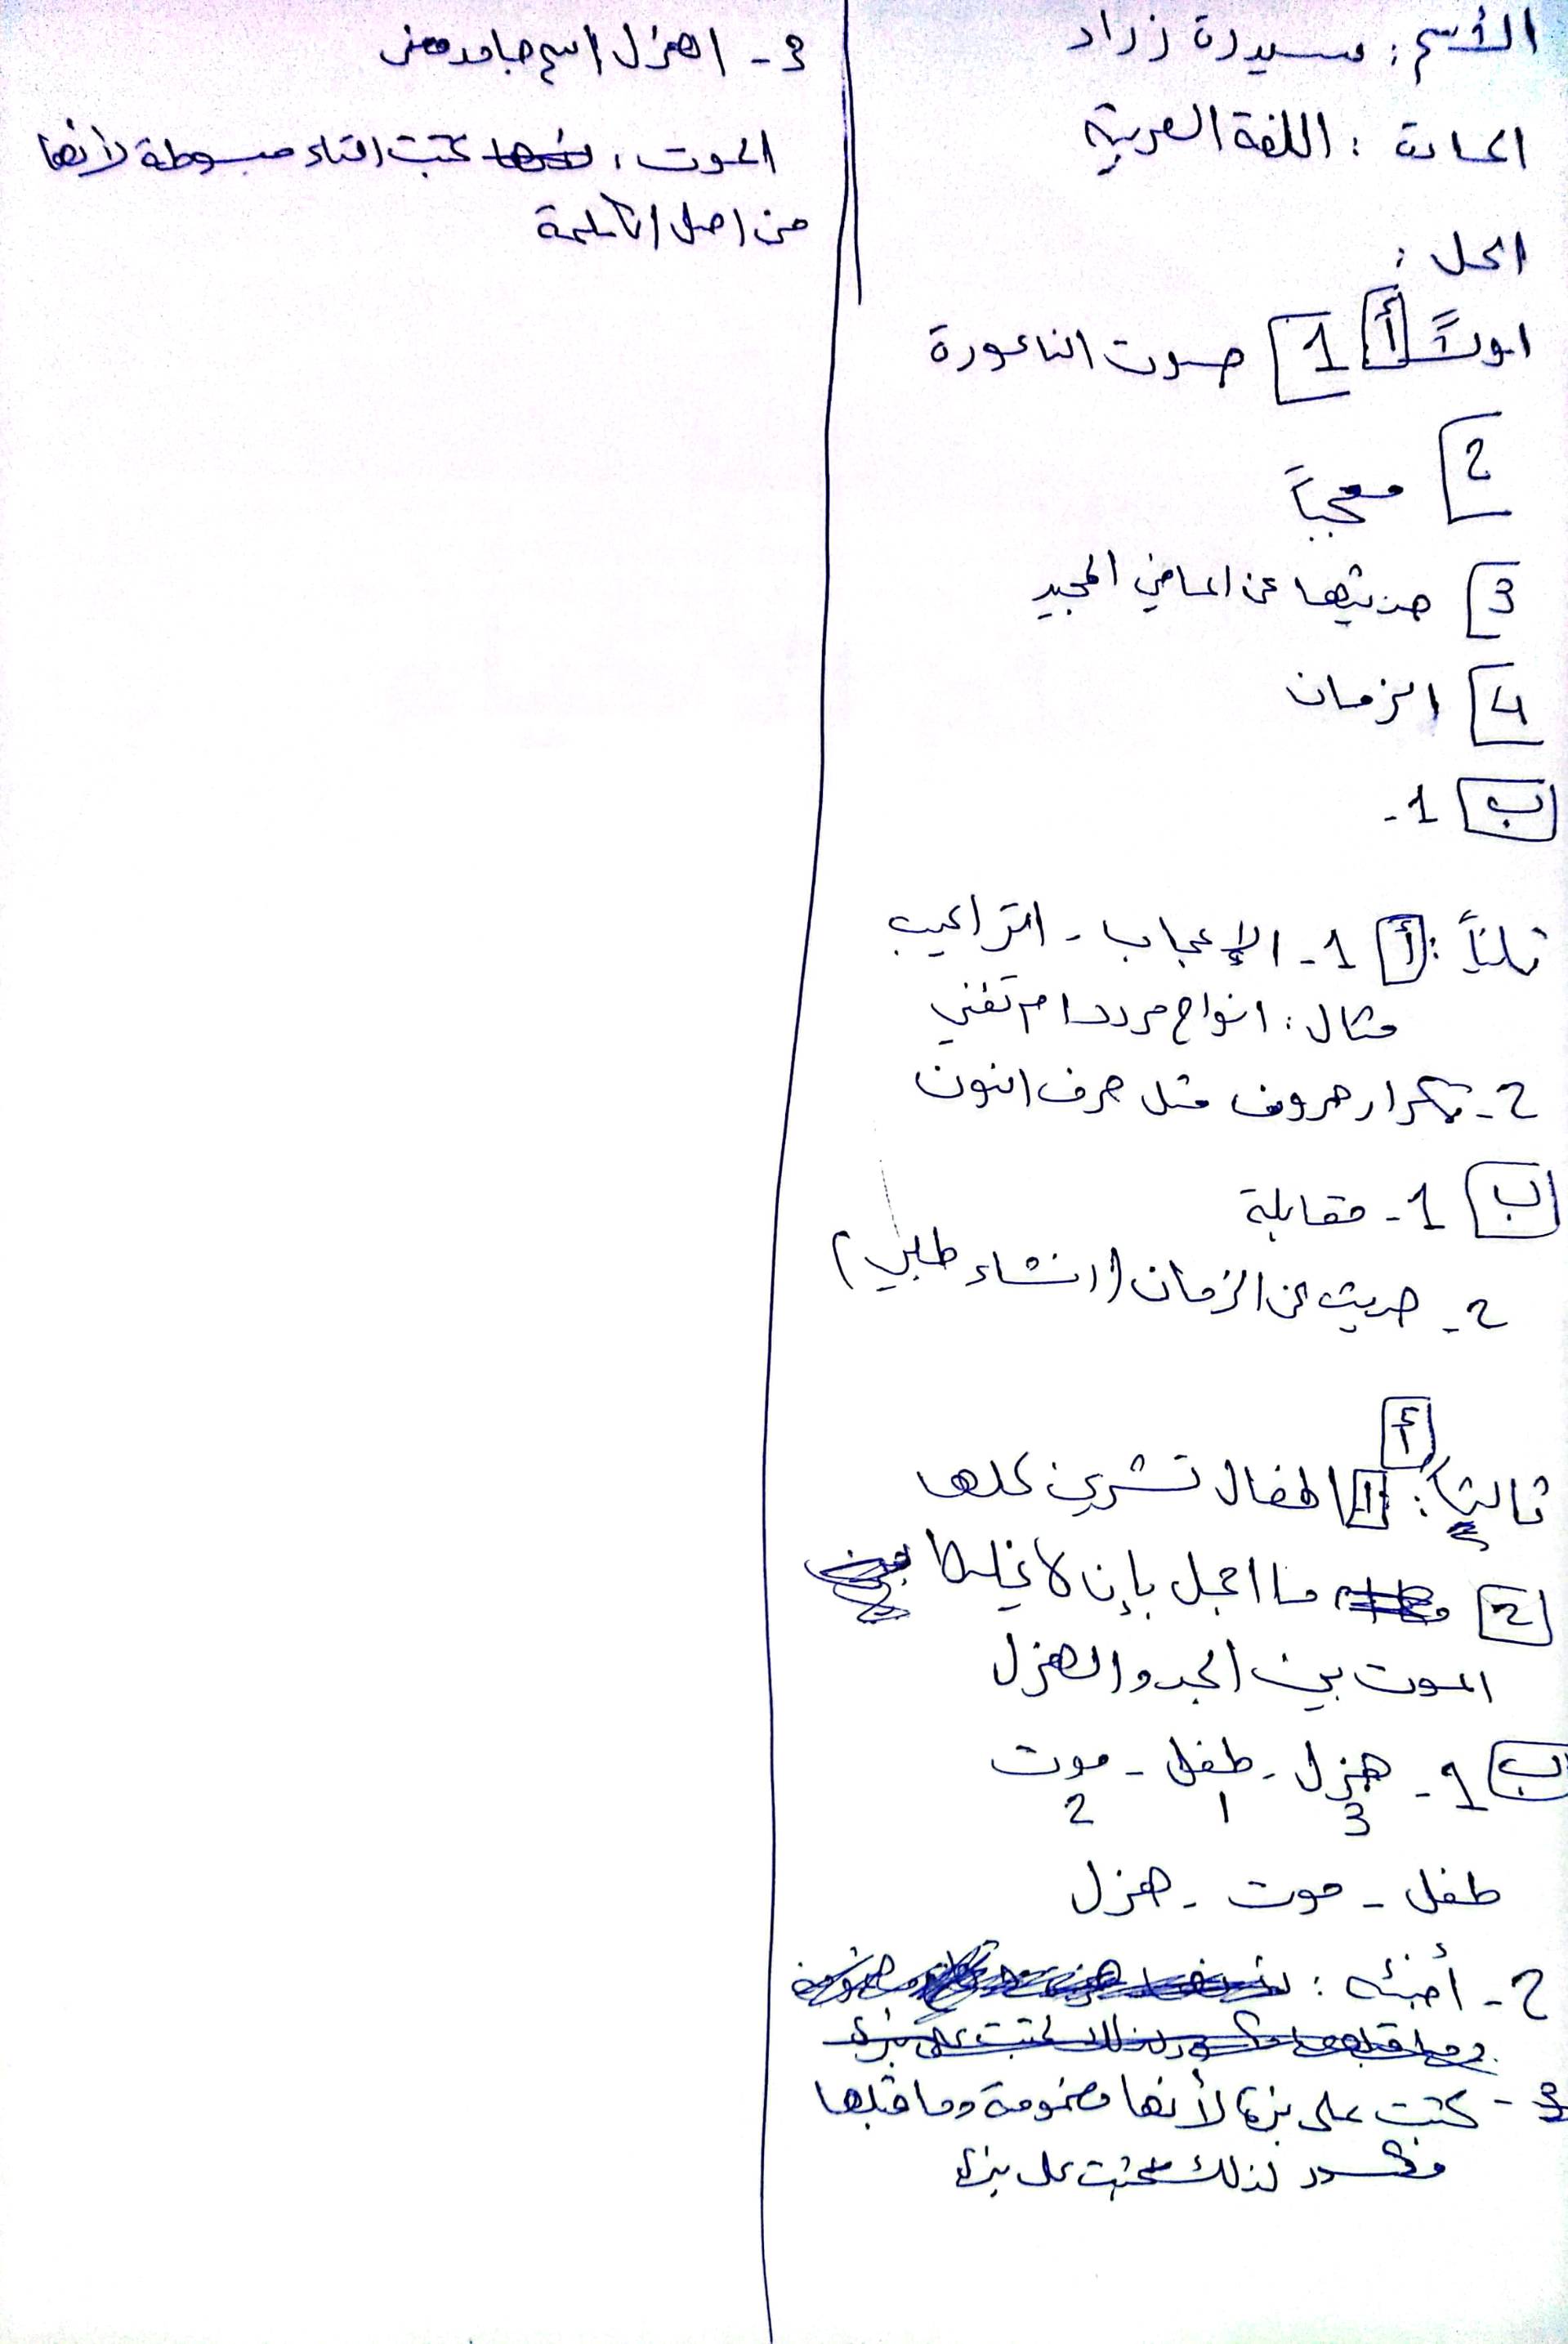 الأسم : سيدرة زراد
المادة : اللغة العربية
الحل :
اولاً أ 1 صوت الناعورة
2 معجباً
3 حديثها عن الماضي المجيد
4 الزمان
ب 1-
أ 1- الإعجاب - التراكيب
مثال : انواح مردد ام تغني
2- تكرار حروف مثل حرف النون
ب 1- مقابلة
2- حديث عن الزمان (انشاء طلبي)
ثالثاً : أ 1 اطفال تشرين كلها
2 ما اجمل بإن لا
الموت بين الجد والهزل
ب 1- هزل - طفل - موت
3 1 2
طفل - موت - هزل
2- :
كتبت على نبرة لأنها مضمومة وما قبلها
مكسور لذلك كتبت على نبرة
3- الهزل اسم جامد معنى
الموت : كتبت التاء مبسوطة لأنها
من اصل الكلمة